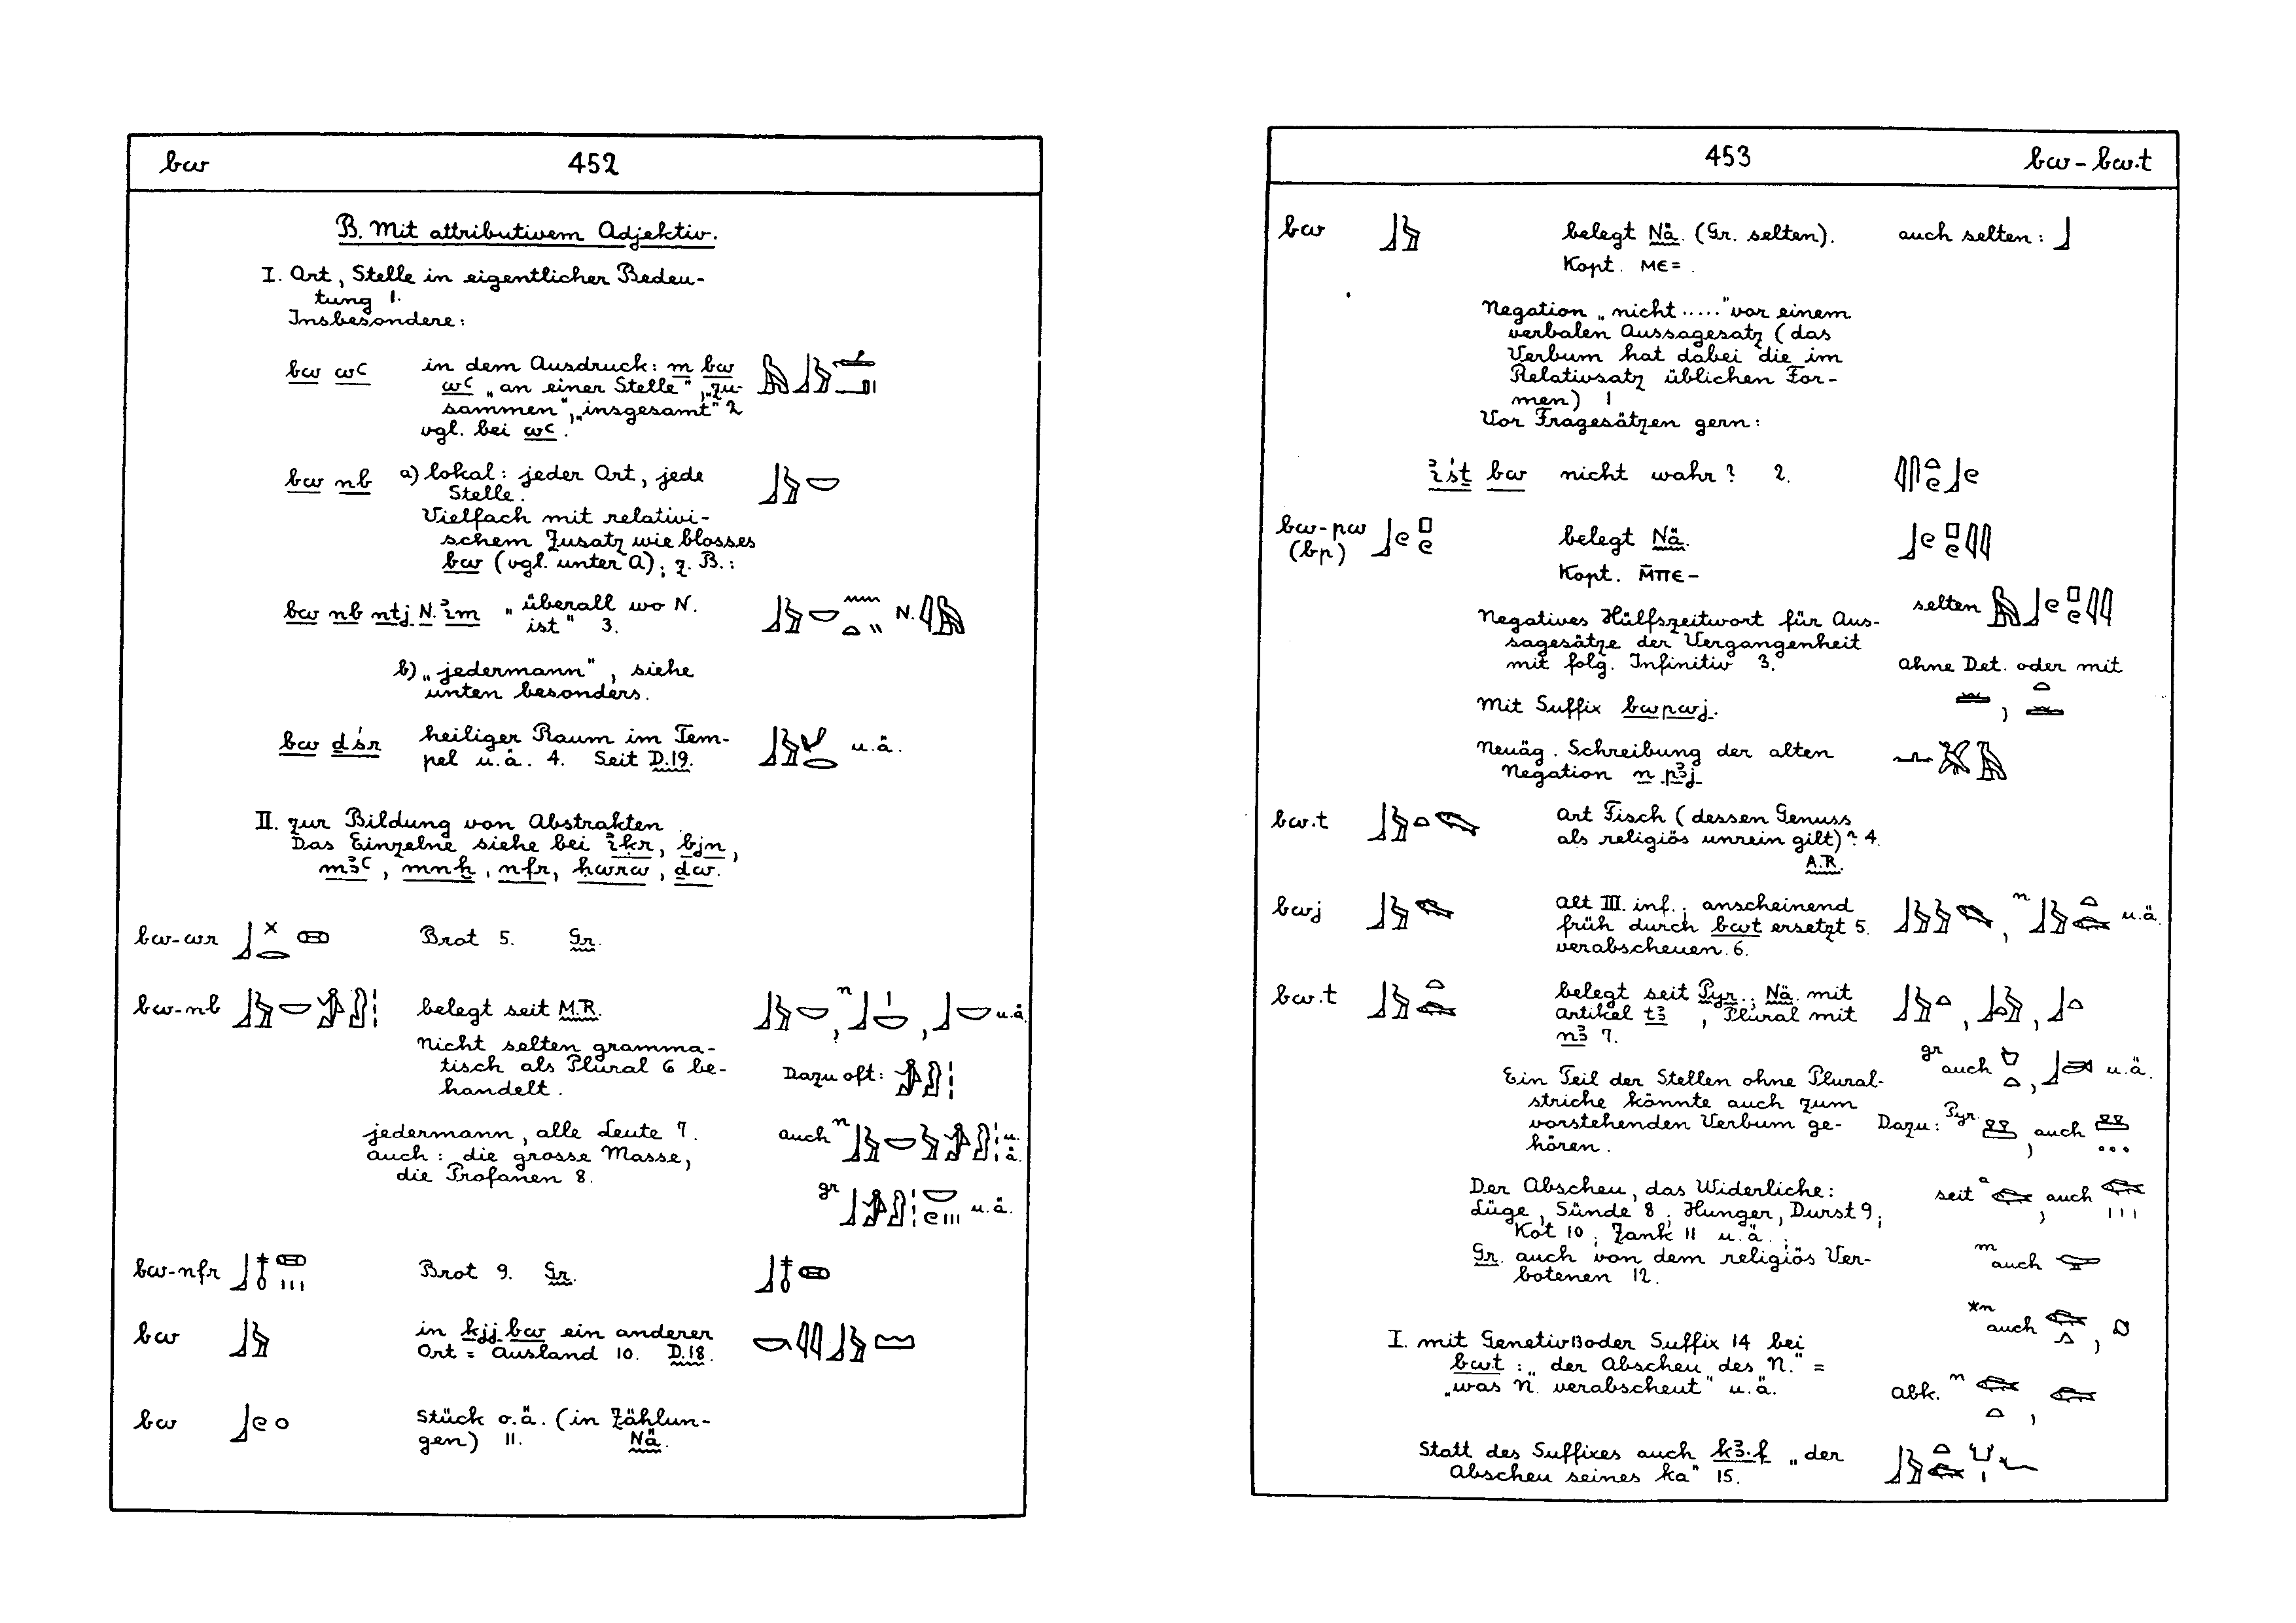 bw 452
B. Mit attributivem Adjektiv.
I. Ort, Stelle in eigentlicher Bedeu-
tung 1.
Insbesondere:
bw wꜥ in dem Ausdruck: m bw
wꜥ „an einer Stelle", „zu-
sammen", „insgesamt" 2
vgl. bei wꜥ.
bw nb a) lokal: jeder Ort, jede
Stelle.
Vielfach mit relativi-
schem Zusatz wie blosses
bw (vgl. unter A); z. B.:
bw nb ntj N. ꞽm „überall wo N. N.
ist" 3.
b) „jedermann", siehe
unten besonders.
bw dśr heiliger Raum im Tem- u.ä.
pel u.ä. 4. Seit D.19.
II. zur Bildung von Abstrakten
Das Einzelne siehe bei ꞽḳr, bjn,
mꜣꜥ, mnḫ, nfr, ḥwrw, ḏw.
bw-wr Brot 5. Gr.
bw-nb belegt seit M.R. n , , u.ä.
Nicht selten gramma-
tisch als Plural 6 be- Dazu oft:
handelt.
jedermann, alle Leute 7. auch n u.
auch: die grosse Masse, ä.
die Profanen 8.
gr u.ä.
bw-nfr Brot 9. Gr.
bw in kjj bw ein anderer
Ort = Ausland 10. D.18.
bw Stück o.ä. (in Zählun-
gen) 11. Nä.
453 bw – bw.t
bw belegt Nä. (Gr. selten). auch selten:
Kopt. ⲙⲉ= .
Negation „nicht....." vor einem
verbalen Aussagesatz (das
Verbum hat dabei die im
Relativsatz üblichen For-
men) 1
Vor Fragesätzen gern:
ꞽśt bw nicht wahr? 2.
bw-pw belegt Nä.
(bp)
Kopt. ⲙ̄ⲡⲉ–
selten
Negatives Hülfszeitwort für Aus-
sagesätze der Vergangenheit
mit folg. Infinitiv 3. ohne Det. oder mit
Mit Suffix bwpwj. ,
Neuäg. Schreibung der alten
Negation n pꜣj
bw.t Art Fisch (dessen Genuss
als religiös unrein gilt)? 4.
A.R.
bwj Alt III. inf.; anscheinend n
früh durch bwt ersetzt 5. , u.ä.
verabscheuen. 6.
bw.t belegt seit Pyr.; Nä. mit
Artikel tꜣ , Plural mit , ,
nꜣ 7.
gr auch , u.ä.
Ein Teil der Stellen ohne Plural-
striche könnte auch zum
vorstehenden Verbum ge- Dazu: Pyr. , auch
hören.
Der Abscheu, das Widerliche: seit a , auch
Lüge, Sünde 8; Hunger, Durst 9;
Kot 10; Zank 11 u.ä.;
Gr. auch von dem religiös Ver- m auch
botenen 12.
*n auch ,
I. mit Genetiv 13 oder Suffix 14 bei
bw.t: „der Abscheu des N." =
„was N. verabscheut" u.ä. abk. n ,
Statt des Suffixes auch kꜣ.f „der
Abscheu seines Ka" 15.